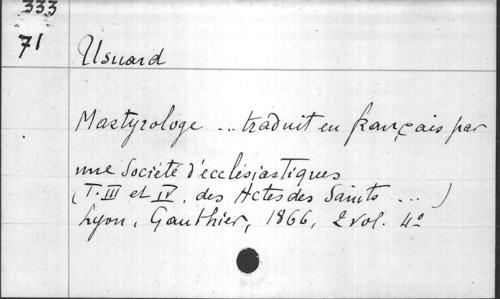 333
71
Usuard
Martyrologe ... traduit en français par
une Société d'ecclésiastiques
(T. III et IV, des Actes des Saints ... )
Lyon, Gauthier, 1866, 2 vol. 4°